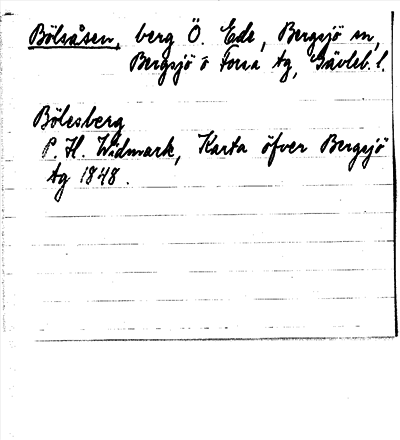 Bölsåsen, berg Ö. Ede, Bergsjö sn,
Bergsjö o Forsa tg, Gävleb. l.
Bölesberg
P. H. Widmark, Karta öfver Bergsjö
tg 1848.